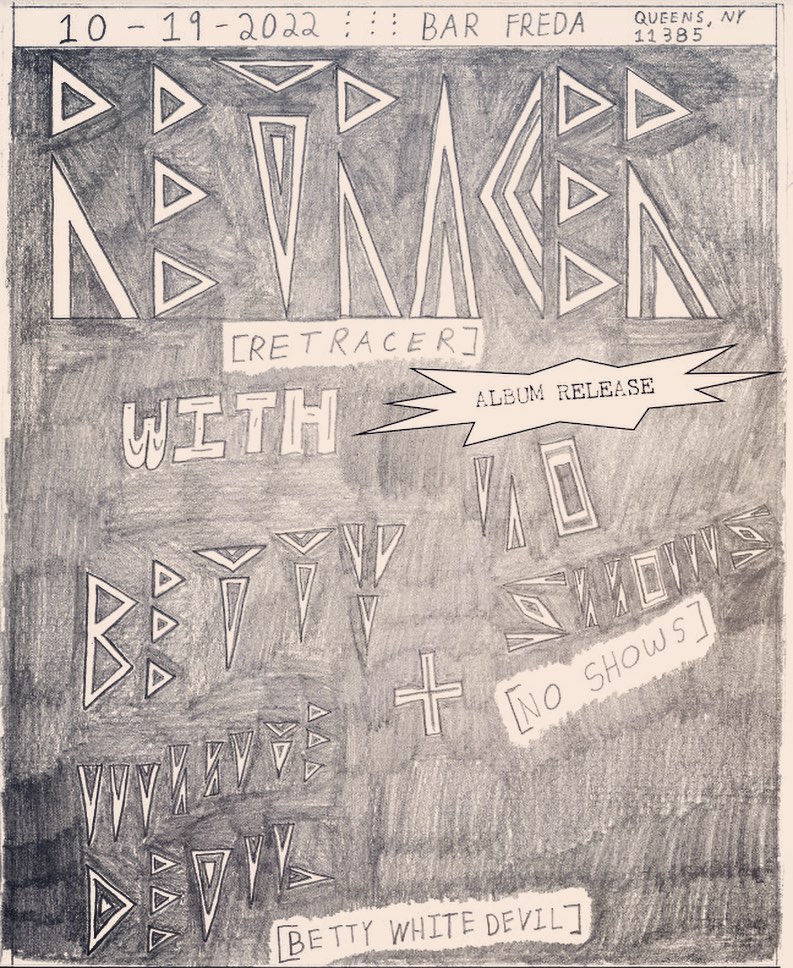 10-19-2022 BAR FREDA QUEENS, NY
11385
RETRACER
[RETRACER]
ALBUM RELEASE
WITH
NO
SHOWS
[NO SHOWS]
BETTY
+
WHITE
DEVIL
[BETTY WHITE DEVIL]